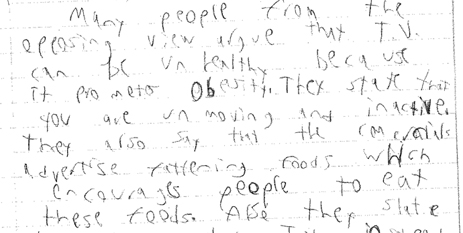 Many people from the
opposing view argue that T.V.
can be unhealthy because
it prometes Obesity. They state that
you are unmoving and inactive.
they also say that the
advertise fattening foods which
encourages people to eat
these foods. Also they state